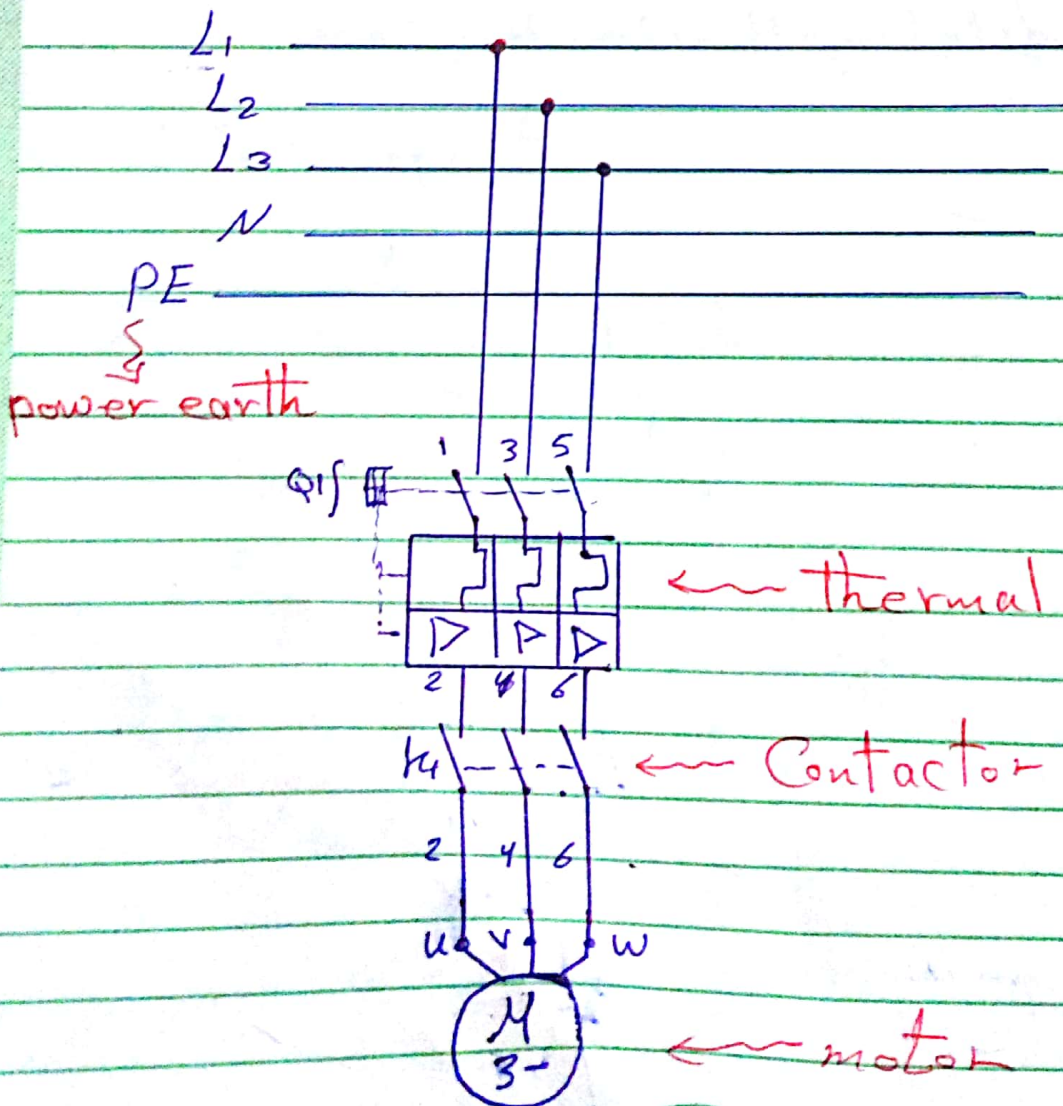 L1
L2
L3
N
PE
power earth
1 3 5
Q1
thermal
2 4 6
Contactor
2 4 6
U V W
M
3-
motor